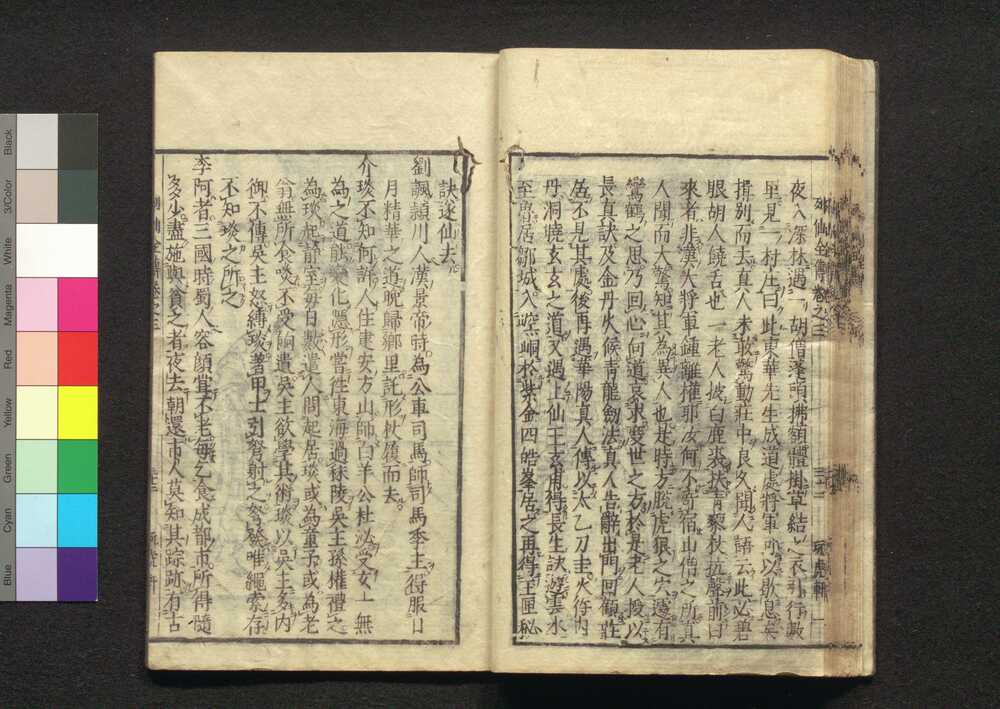 列仙全傳卷之三
三二
玩虎軒
夜入深林過一胡僧蓬頭拂額體掛草結之衣引行數
里見一村庄曰此東華先生成道處將軍可以歇息矣
揖別而去真人未敢驚動庄中良久聞人語云此必碧
眼胡人饒舌也一老人披白鹿裘扶青藜杖抗聲前曰
來者非漢大將軍鍾離權耶汝何不寄宿山僧之所真
人聞而大驚知其為異人也是時方脫虎狼之穴遽有
鸞鶴之思乃回心向道哀求度世之方於是老人授以
長真訣及金丹火候青龍劍法真人告辭出門回顧庄
居不見其處後再遇華陽真人傳以太乙刀圭火符內
丹洞曉玄玄之道又遇上仙王玄甫得長生訣遊雲水
至魯居鄒城入崆峒於紫金四皓峯居之再得玉匣秘
訣遂仙去
劉諷潁川人漢景帝時為公車司馬師司馬季主得服日
月精華之道晚歸鄉里託形杖履而去
介琰不知何許人住建安方山師白羊公杜泌受玄一無
為之道能變化隱形嘗往東海過秣陵吳主孫權禮之
為琰起靜室每日數遣人問起居琰或為童子或為老
翁無所食啖不受餉遺吳主欲學其術琰以吳主多內
御不傳吳主怒縛琰著甲士引弩射之弩發唯繩索存
不知琰之所之
李阿者三國時蜀人容顏常不老每乞食成都市所得隨
多少盡施與貧乏者夜去朝還市人莫知其踪跡有古
玩虎軒
Black
3/Color
White
Magenta
Red
Yellow
Green
Cyan
Blue